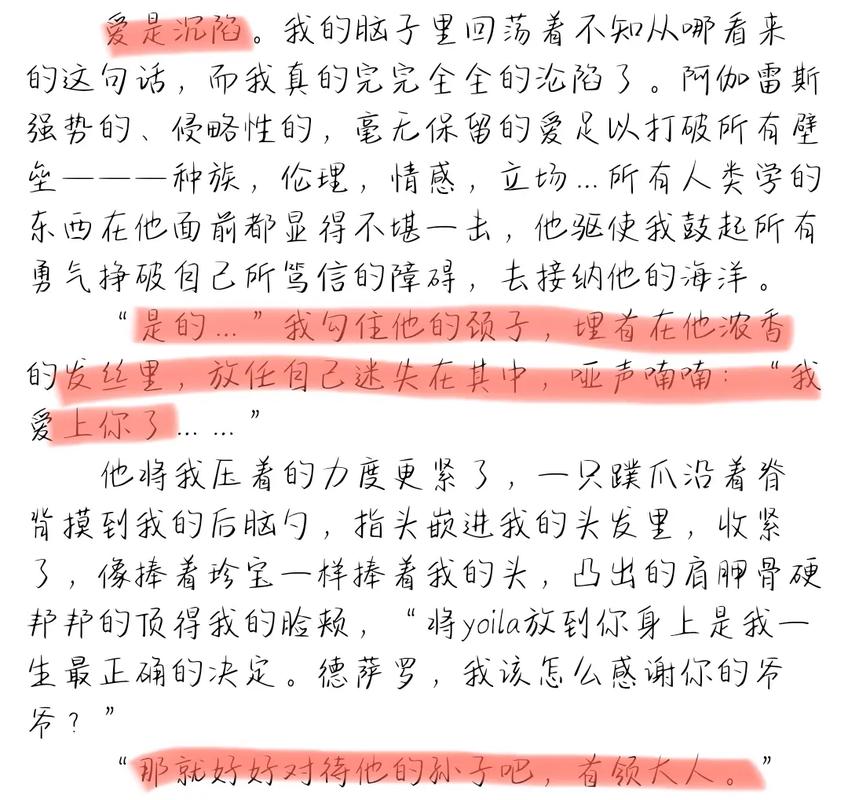 爱是沉陷。我的脑子里回荡着不知从哪看来
的这句话，而我真的完完全全的沦陷了。阿伽雷斯
强势的、侵略性的，毫无保留的爱足以打破所有壁
垒———种族，伦理，情感，立场…所有人类学的
东西在他面前都显得不堪一击，他驱使我鼓起所有
勇气挣破自己所笃信的障碍，去接纳他的海洋。
“是的…”我勾住他的颈子，埋首在他浓香
的发丝里，放任自己迷失在其中，哑声喃喃：“我
爱上你了……”
他将我压着的力度更紧了，一只蹼爪沿着脊
背摸到我的后脑勺，指头嵌进我的头发里，收紧
了，像捧着珍宝一样捧着我的头，凸出的肩胛骨硬
邦邦的顶得我的脸颊，“将yoila放到你身上是我一
生最正确的决定。德萨罗，我该怎么感谢你的爷
爷？”
“那就好好对待他的孙子吧，首领大人。”